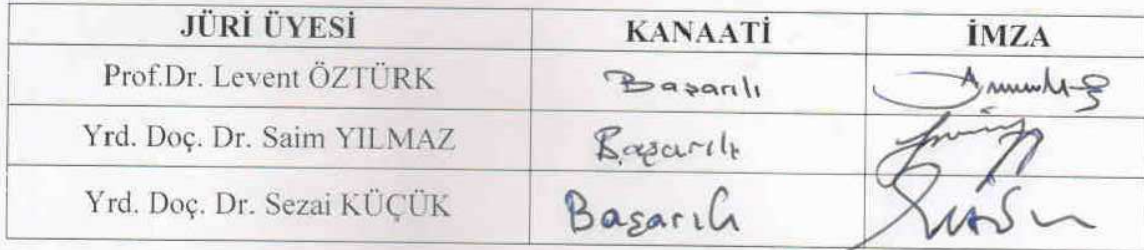 JÜRİ ÜYESİ KANAATİ İMZA
Prof.Dr. Levent ÖZTÜRK Başarılı
Yrd. Doç. Dr. Saim YILMAZ Başarılı
Yrd. Doç. Dr. Sezai KÜÇÜK Başarılı